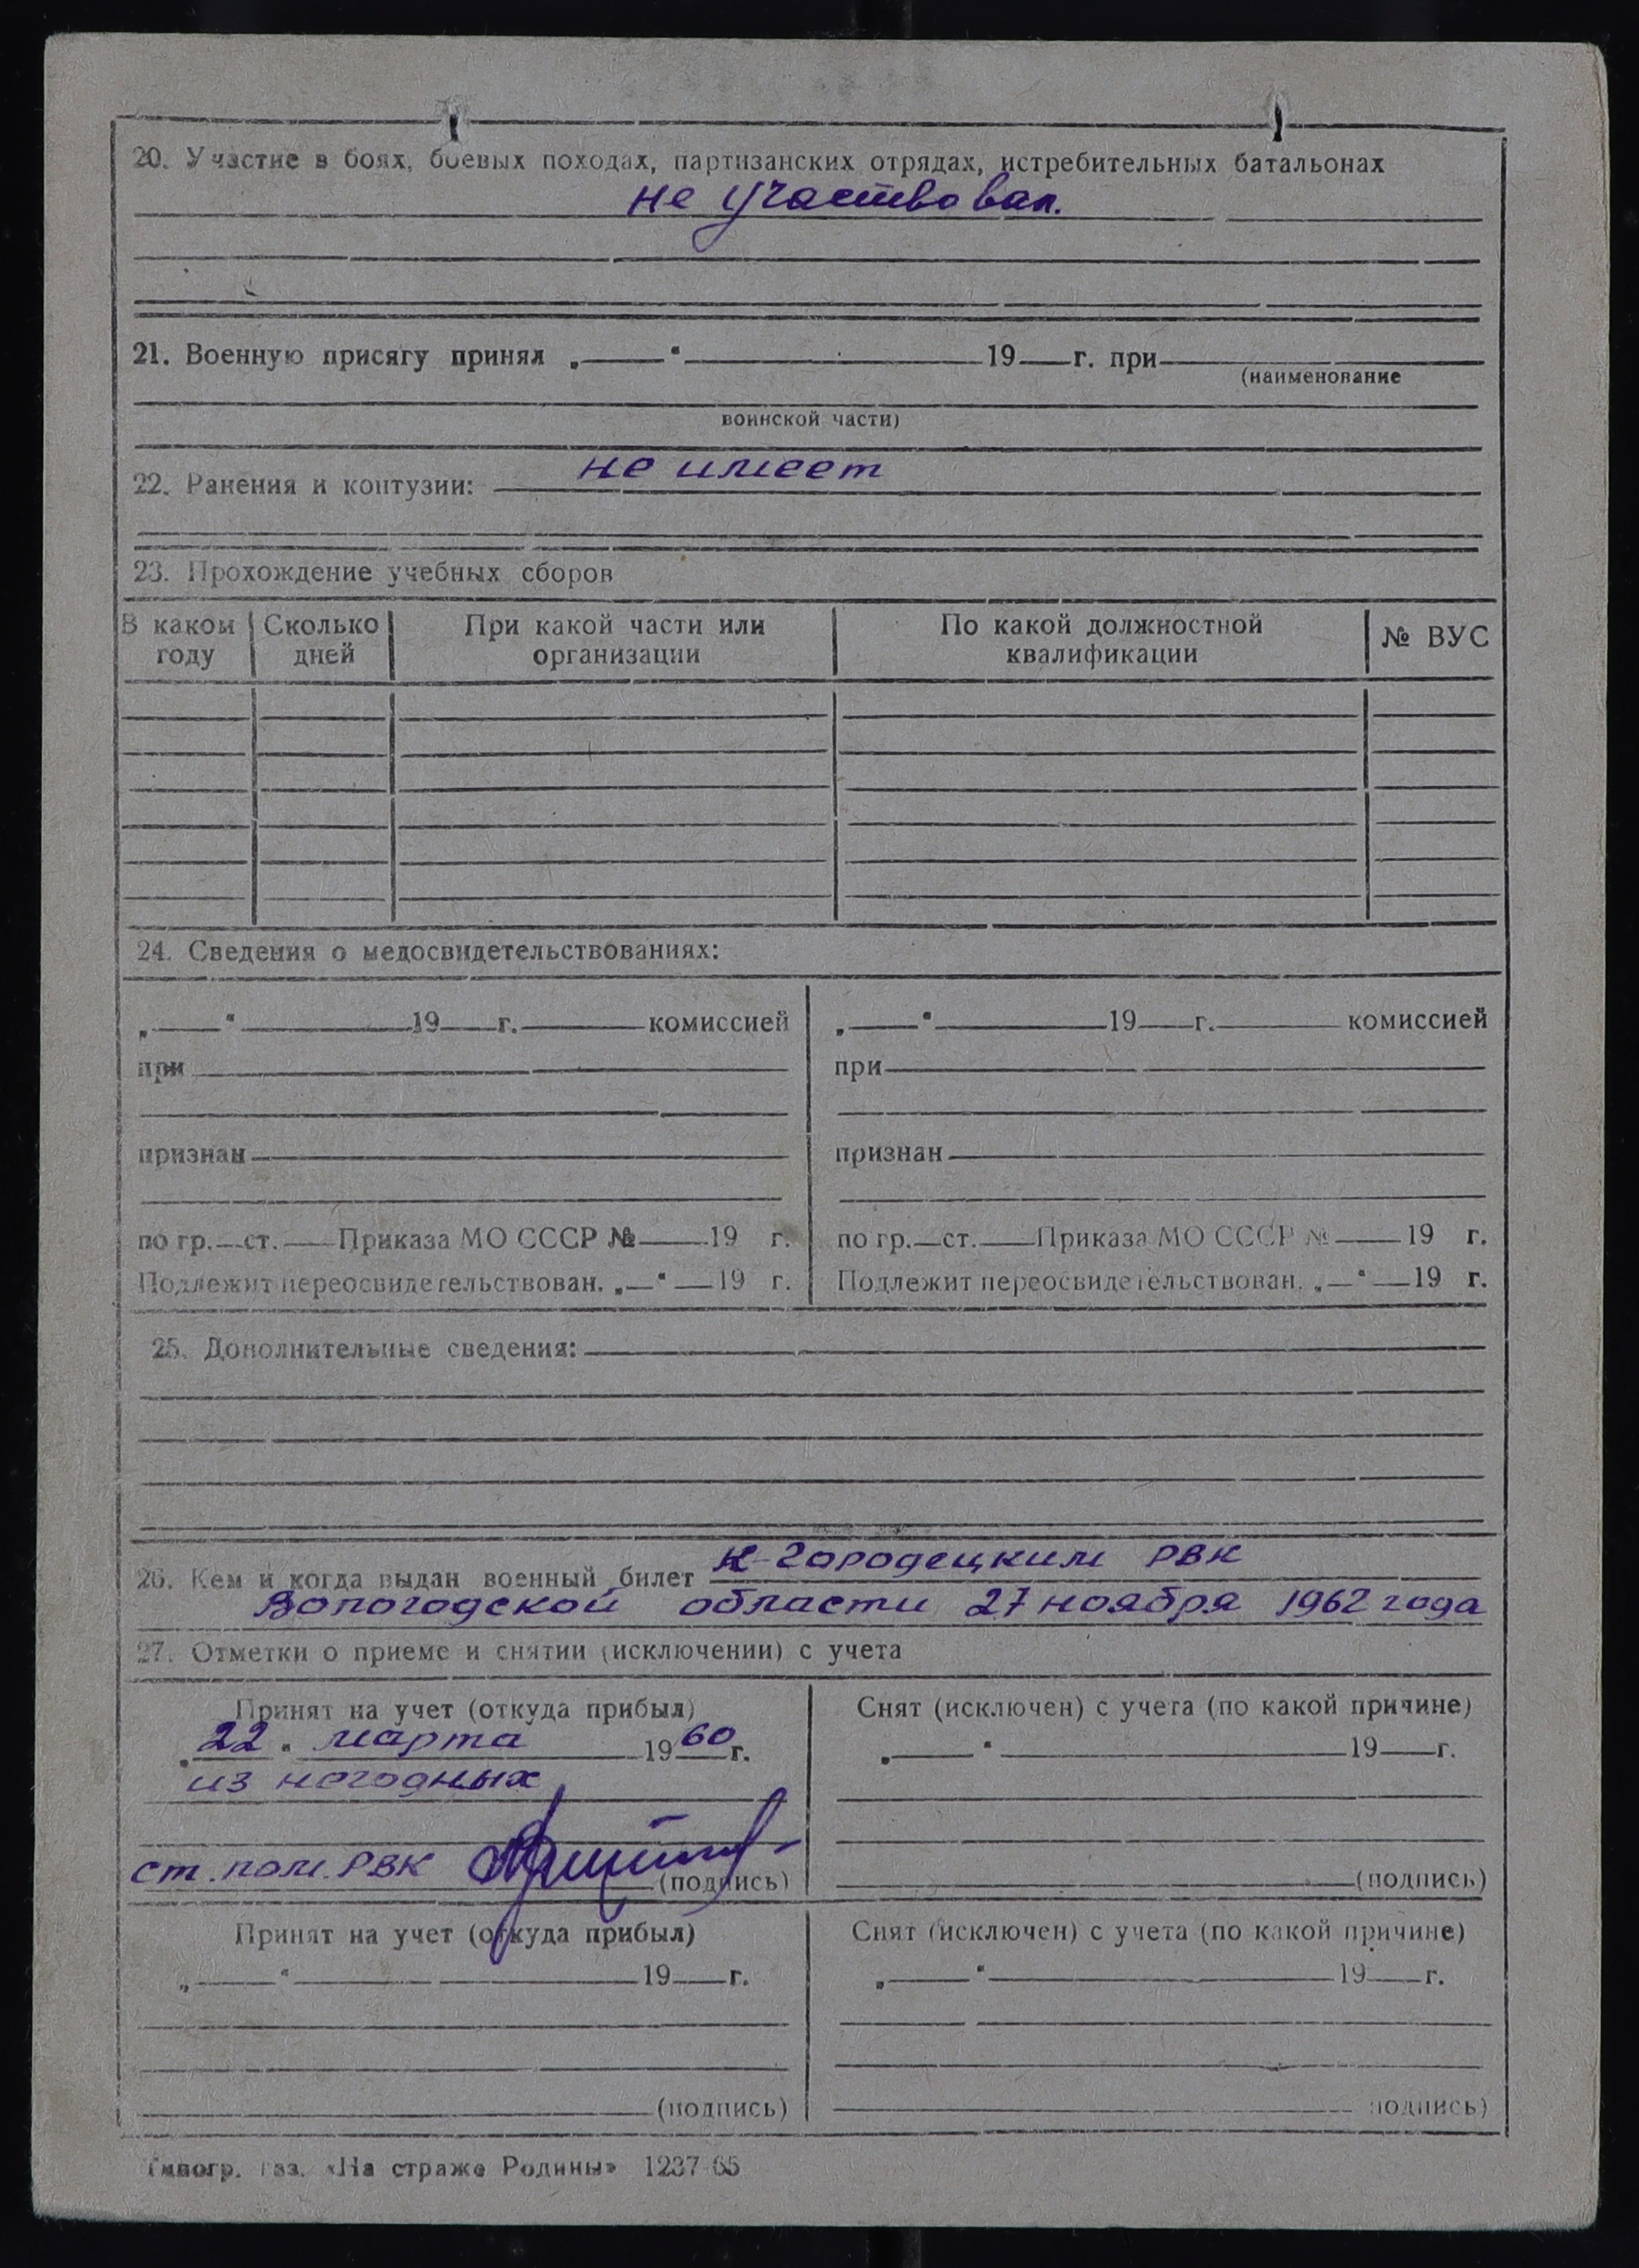 20. Участие в боях, боевых походах, партизанских отрядах, истребительных батальонах
не участвовал.
21. Военную присягу принял „ “ 19 г. при
(наименование
воинской части)
22. Ранения и контузии: не имеет
23. Прохождение учебных сборов
В каком году Сколько дней При какой части или организации По какой должностной квалификации № ВУС
24. Сведения о медосвидетельствованиях:
„ “ 19 г. комиссией
при
признан
по гр. ст. Приказа МО СССР № 19 г.
Подлежит переосвидетельствован. „ “ 19 г.
„ “ 19 г. комиссией
при
признан
по гр. ст. Приказа МО СССР № 19 г.
Подлежит переосвидетельствован. „ “ 19 г.
25. Дополнительные сведения:
26. Кем и когда выдан военный билет К-Городецким РВК
Вологодской области 27 ноября 1962 года
27. Отметки о приеме и снятии (исключении) с учета
Принят на учет (откуда прибыл)
„22“ марта 1960 г.
из негодных
ст. пом. РВК
(подпись)
Снят (исключен) с учета (по какой причине)
„ “ 19 г.
(подпись)
Принят на учет (откуда прибыл)
„ “ 19 г.
(подпись)
Снят (исключен) с учета (по какой причине)
„ “ 19 г.
подпись)
Типогр. газ. «На страже Родины» 1237-65